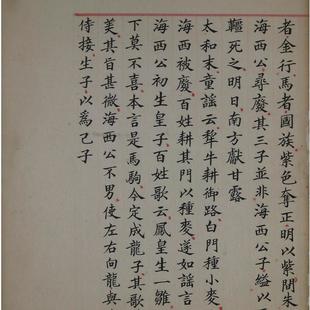 者金行馬者國族紫色奪正明以紫間朱
海西公尋廢其三子並非海西公子縊以
韁死之明日南方獻甘露
太和末童謠云犂牛耕御路白門種小麥
海西被廢百姓耕其門以種麥遂如謠言
海西公初生皇子百姓歌云鳳皇生一雛
下莫不喜本言是馬駒今定成龍子其歌
美其旨甚微海西公不男使左右向龍與
侍接生子以爲己子